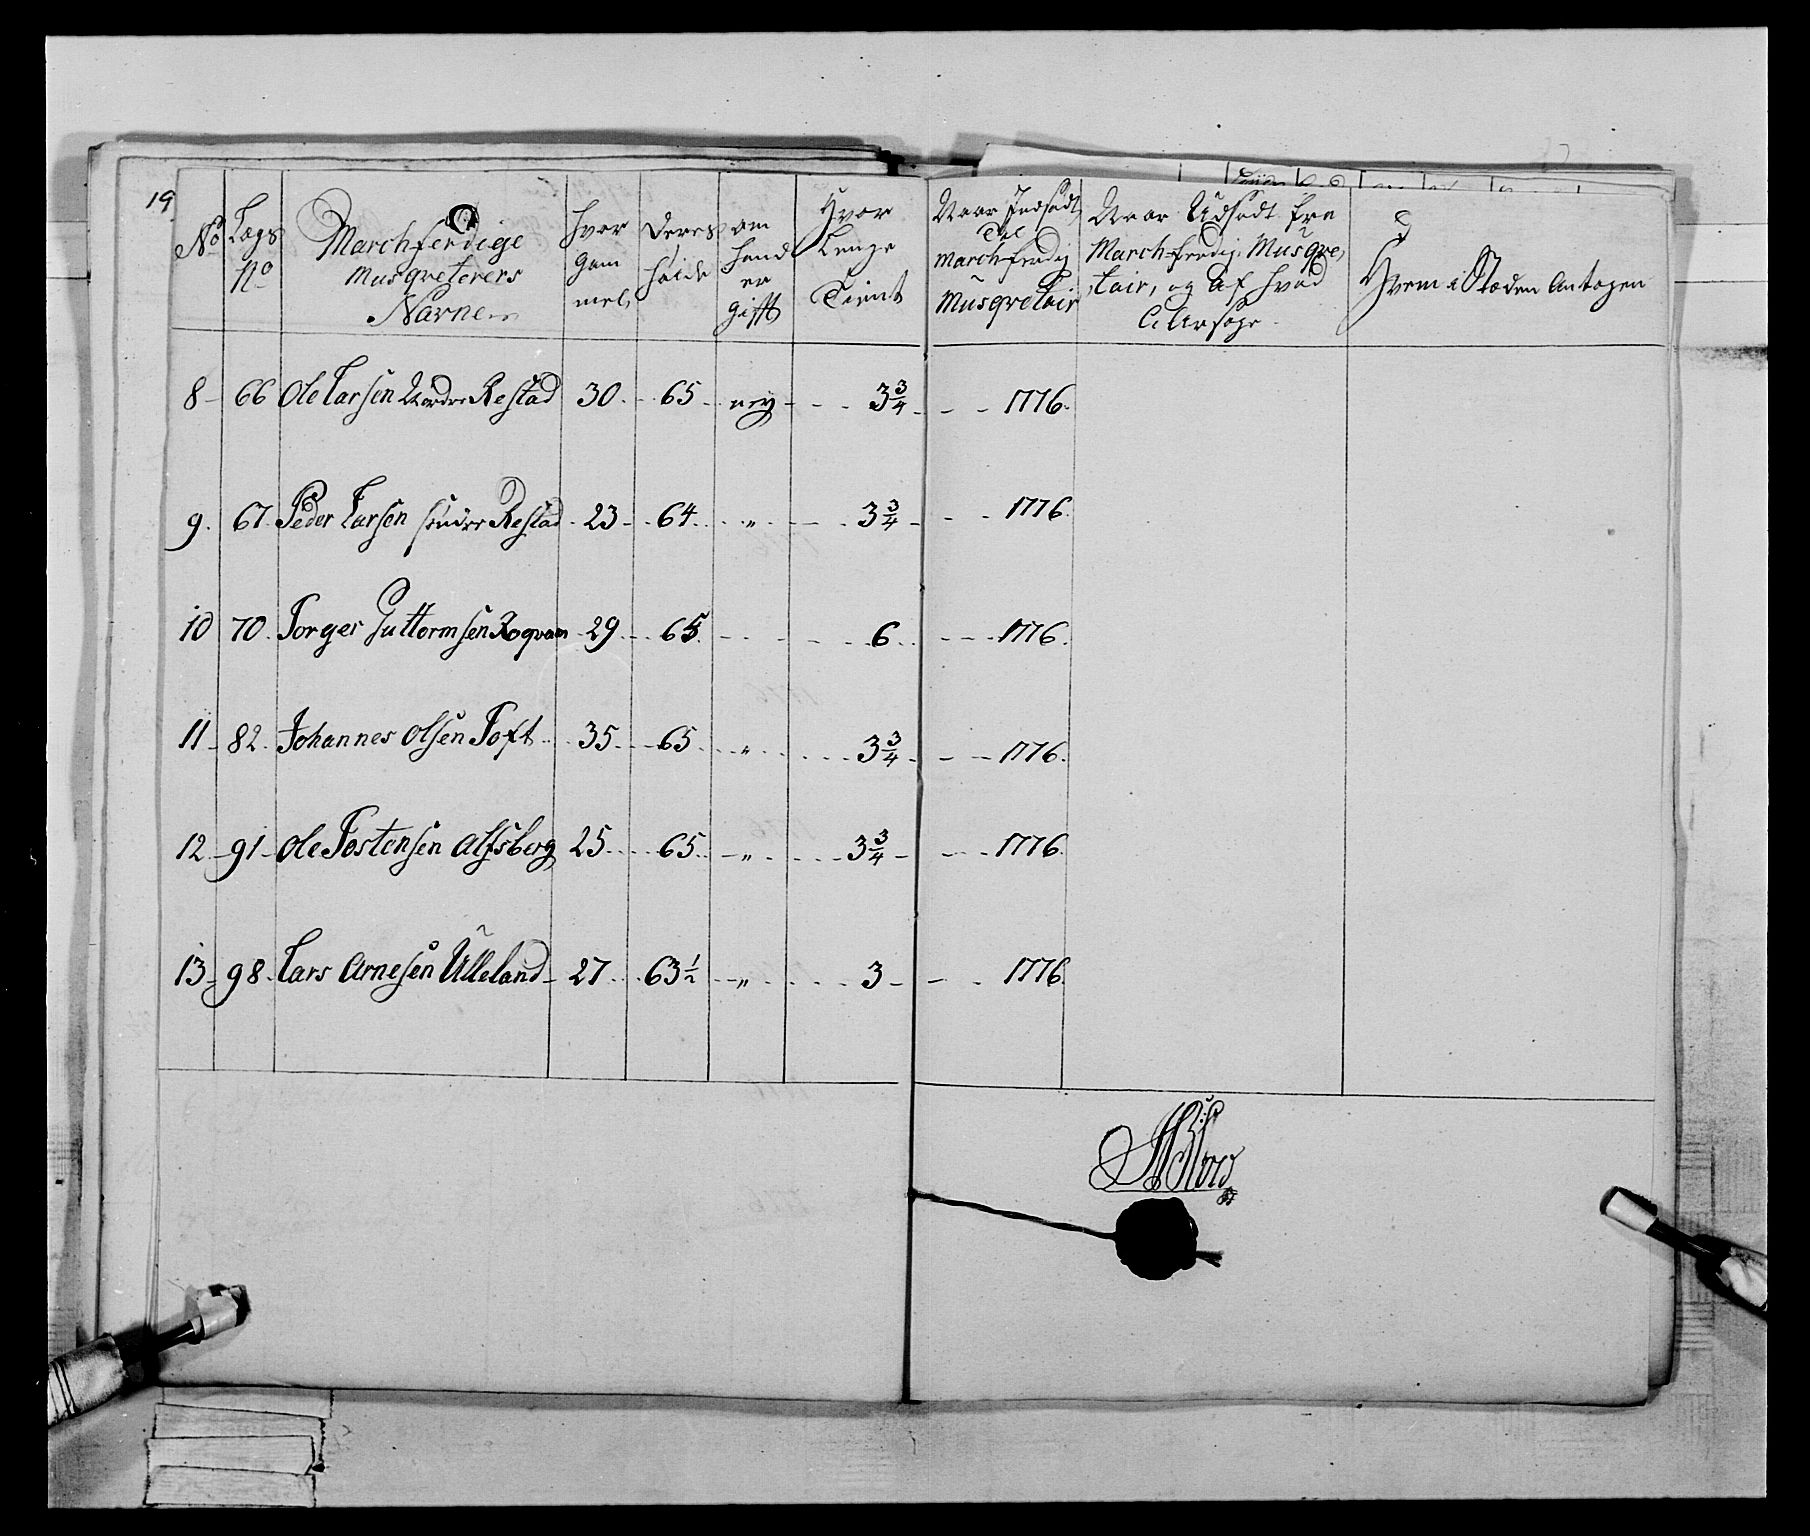 19
No
Lags No
Marchferdige Musqveterers Navne
hvor gam mel,
deres høide
om hand er gifft
Hvor Lenge Tient
Naar Indsadt til marchferdig Musqvetair
Naar Udsadt fra March-ferdig Musqve, tair, og af hvad Aarsage
Hvem i Stæden Antagen
8 - 66 Ole Larsen Nordre Restad 30 - 65 - ney - - - 3 3/4 - - - 1776.
9. 67. Peder Larsen søndre Restad - 23 - 64 - „ - - 3 3/4 - - - 1776.
10 70. Torger Guttormsen Rogvam - 29 - 65. - - - 6 - - - 1776.
11 - 82. Johannes Olsen Toft - 35 - 65 - „ - - 3 3/4 - - - 1776.
12 - 91 - Ole Tostensen Alfsberg 25 - 65 - „ - - 3 3/4 - - - 1776.
13 - 98. Lars Arnesen Ulleland - 27 - 63 1/2 - „ - - 3 - - - 1776.